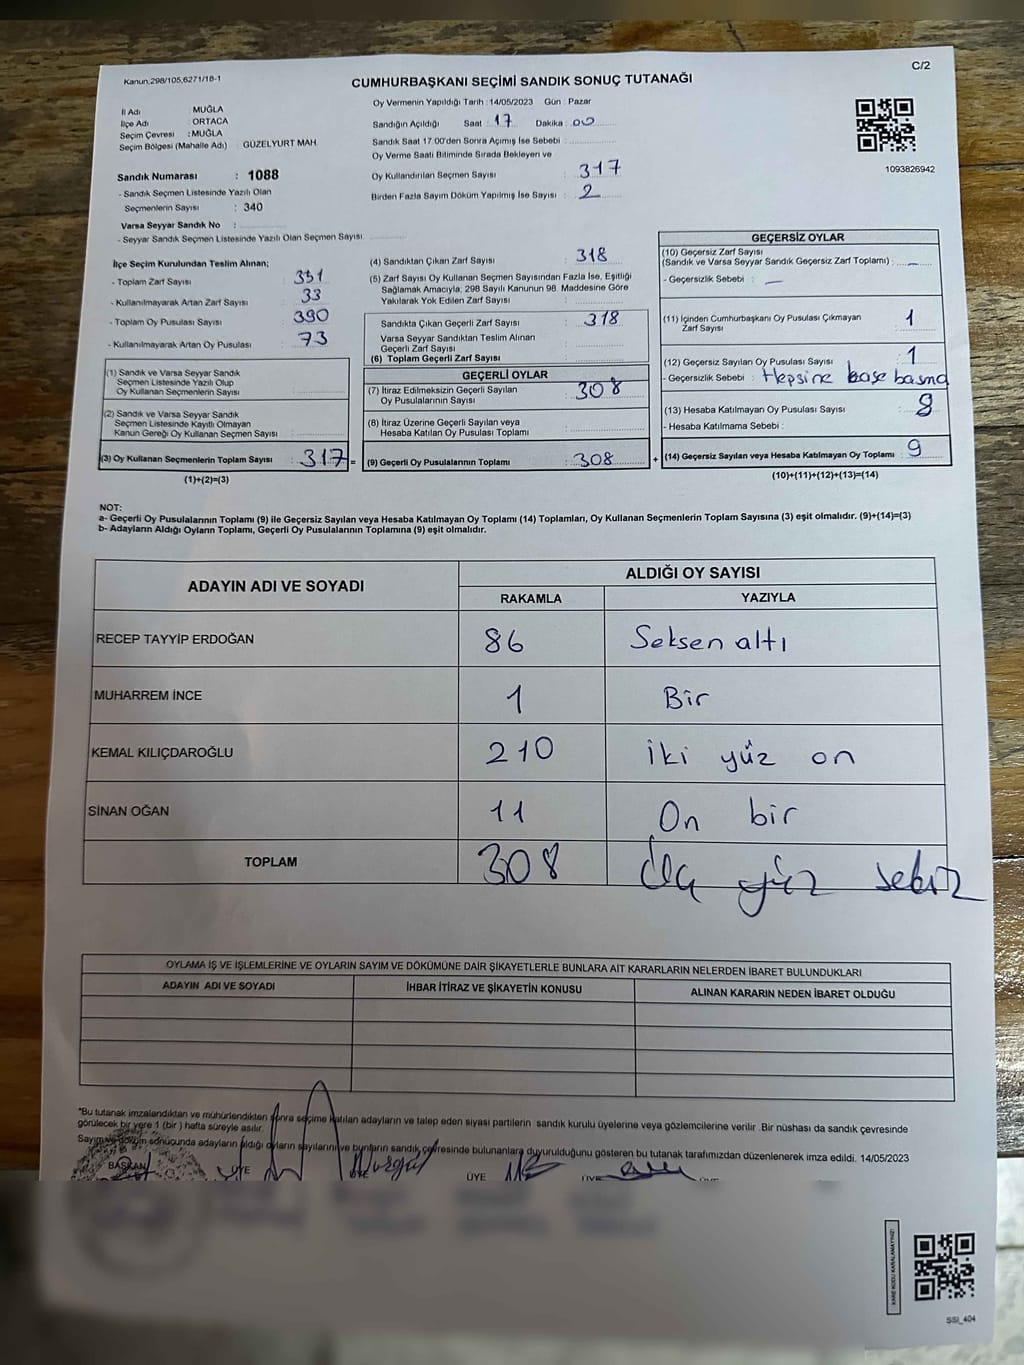 Kanun,298/105,6271/18-1
C/2
CUMHURBAŞKANI SEÇİMİ SANDIK SONUÇ TUTANAĞI
İl Adı : MUĞLA
İlçe Adı : ORTACA
Seçim Çevresi : MUĞLA
Seçim Bölgesi (Mahalle Adı) GÜZELYURT MAH.
Sandık Numarası : 1088
- Sandık Seçmen Listesinde Yazılı Olan
Seçmenlerin Sayısı : 340
Varsa Seyyar Sandık No :
- Seyyar Sandık Seçmen Listesinde Yazılı Olan Seçmen Sayısı
Oy Vermenin Yapıldığı Tarih : 14/05/2023 Gün : Pazar
Sandığın Açıldığı Saat : 17 Dakika : 00
Sandık Saat 17.00'den Sonra Açımış İse Sebebi :
Oy Verme Saati Bitiminde Sırada Bekleyen ve
Oy Kullandırılan Seçmen Sayısı : 317
Birden Fazla Sayım Döküm Yapılmış İse Sayısı : 2
1093826942
İlçe Seçim Kurulundan Teslim Alınan;
- Toplam Zarf Sayısı : 351
- Kullanılmayarak Artan Zarf Sayısı : 33
- Toplam Oy Pusulası Sayısı : 390
- Kullanılmayarak Artan Oy Pusulası : 73
(1) Sandık ve Varsa Seyyar Sandık
Seçmen Listesinde Yazılı Olup
Oy Kullanan Seçmenlerin Sayısı :
(2) Sandık ve Varsa Seyyar Sandık
Seçmen Listesinde Kayıtlı Olmayan
Kanun Gereği Oy Kullanan Seçmen Sayısı :
(3) Oy Kullanan Seçmenlerin Toplam Sayısı : 317 =
(1)+(2)=(3)
(4) Sandıktan Çıkan Zarf Sayısı : 318
(5) Zarf Sayısı Oy Kullanan Seçmen Sayısından Fazla İse, Eşitliği
Sağlamak Amacıyla, 298 Sayılı Kanunun 98. Maddesine Göre
Yakılarak Yok Edilen Zarf Sayısı :
Sandıkta Çıkan Geçerli Zarf Sayısı : 318
Varsa Seyyar Sandıktan Teslim Alınan
Geçerli Zarf Sayısı :
(6) Toplam Geçerli Zarf Sayısı :
GEÇERLİ OYLAR
(7) İtiraz Edilmeksizin Geçerli Sayılan
Oy Pusulalarının Sayısı : 308
(8) İtiraz Üzerine Geçerli Sayılan veya
Hesaba Katılan Oy Pusulası Toplamı :
(9) Geçerli Oy Pusulalarının Toplamı : 308 +
GEÇERSİZ OYLAR
(10) Geçersiz Zarf Sayısı
(Sandık ve Varsa Seyyar Sandık Geçersiz Zarf Toplamı) : —
- Geçersizlik Sebebi : —
(11) İçinden Cumhurbaşkanı Oy Pusulası Çıkmayan
Zarf Sayısı : 1
(12) Geçersiz Sayılan Oy Pusulası Sayısı : 1
- Geçersizlik Sebebi : Hepsine kaşe basma
(13) Hesaba Katılmayan Oy Pusulası Sayısı : 8
- Hesaba Katılmama Sebebi :
(14) Geçersiz Sayılan veya Hesaba Katılmayan Oy Toplamı : 9
(10)+(11)+(12)+(13)=(14)
NOT:
a- Geçerli Oy Pusulalarının Toplamı (9) ile Geçersiz Sayılan veya Hesaba Katılmayan Oy Toplamı (14) Toplamları, Oy Kullanan Seçmenlerin Toplam Sayısına (3) eşit olmalıdır. (9)+(14)=(3)
b- Adayların Aldığı Oyların Toplamı, Geçerli Oy Pusulalarının Toplamına (9) eşit olmalıdır.
ADAYIN ADI VE SOYADI ALDIĞI OY SAYISI
RAKAMLA YAZIYLA
RECEP TAYYİP ERDOĞAN 86 Seksen altı
MUHARREM İNCE 1 Bir
KEMAL KILIÇDAROĞLU 210 İki yüz on
SİNAN OĞAN 11 On bir
TOPLAM 308 Üç yüz sekiz
OYLAMA İŞ VE İŞLEMLERİNE VE OYLARIN SAYIM VE DÖKÜMÜNE DAİR ŞİKAYETLERLE BUNLARA AİT KARARLARIN NELERDEN İBARET BULUNDUKLARI
ADAYIN ADI VE SOYADI İHBAR İTİRAZ VE ŞİKAYETİN KONUSU ALINAN KARARIN NEDEN İBARET OLDUĞU
*Bu tutanak imzalandıktan ve mühürlendikten sonra seçime katılan adayların ve talep eden siyasi partilerin sandık kurulu üyelerine veya gözlemcilerine verilir .Bir nüshası da sandık çevresinde
görülecek bir yere 1 (bir ) hafta süreyle asılır.
Sayım ve döküm sonucunda adayların aldığı oyların sayılarını ve bunların sandık çevresinde bulunanlara duyurulduğunu gösteren bu tutanak tarafımızdan düzenlenerek imza edildi. 14/05/2023
BAŞKAN ÜYE ÜYE ÜYE ÜYE ÜYE
KARE KODU KARALAMAYINIZ!
SSI_404